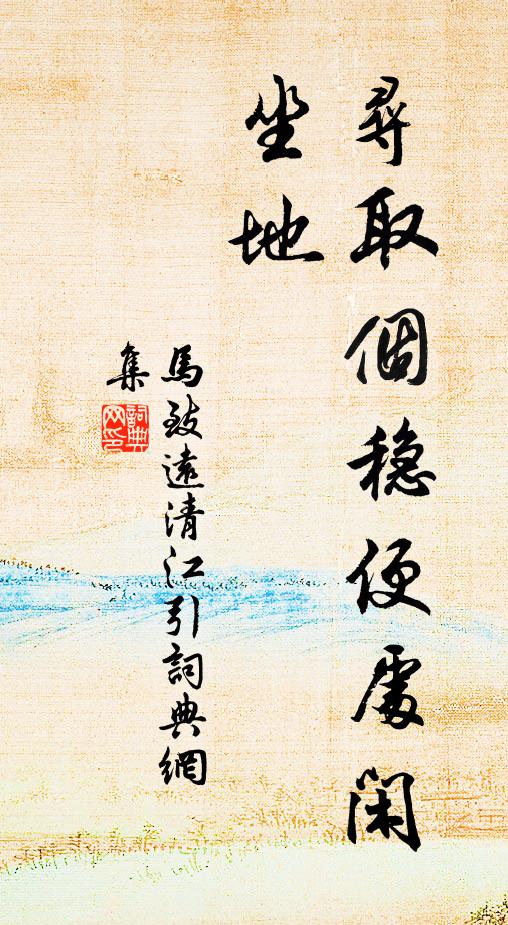 尋取個穩便處閑
坐地
馬致遠清江引詞典網
集
詞典網印